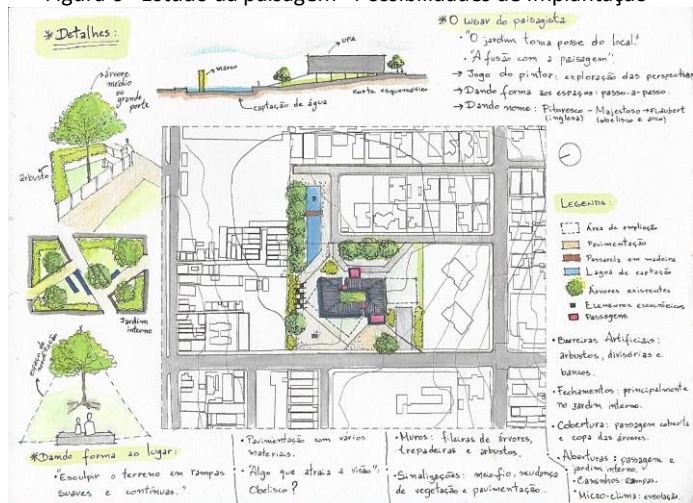 Figura 6 - Estudo da paisagem - Possibilidades de implantação
* Detalhes:
árvore
médio
ou
grande
porte
arbusto
Jardim
interno
espaço de
*Dando forma ao lugar:
• Esculpir o terreno em rampas
suaves e contínuas."
marco
UPA
captação de água
corte esquemático
* O lugar do paisagista
• "O jardim toma posse do local."
"A fusão com a paisagem";
→ Jogo do pintor: exploração das perspectivas
→ Dando forma aos espaços: passo-a-passo.
→ Dando nome: Pitoresco - Majestoso → Flaubert
(inglesa) (obelisco e arco)
LEGENDA:
Área de ampliação
Pavimentação
Passarela em madeira
Lagoa de captação
Árvores existentes
Elementos escultóricos
Passagens
• Barreiras Artificiais:
arbustos, divisórias e
bancos.
• Fechamentos: principalmente
no jardim interno.
Cobertura: passagem coberta
e copa das árvores.
• Aberturas: passagem e
jardim interno.
• Caminhos: rampas.
• Micro-clima: insolação.
• Pavimentação com varios
materiais.
"Algo que atraia a visão";
Obelisco?
• Muros: fileiras de árvores,
trepadeiras e arbustos.
• Sinalizações: meio-fio, mudança
de vegetação e pavimentação.